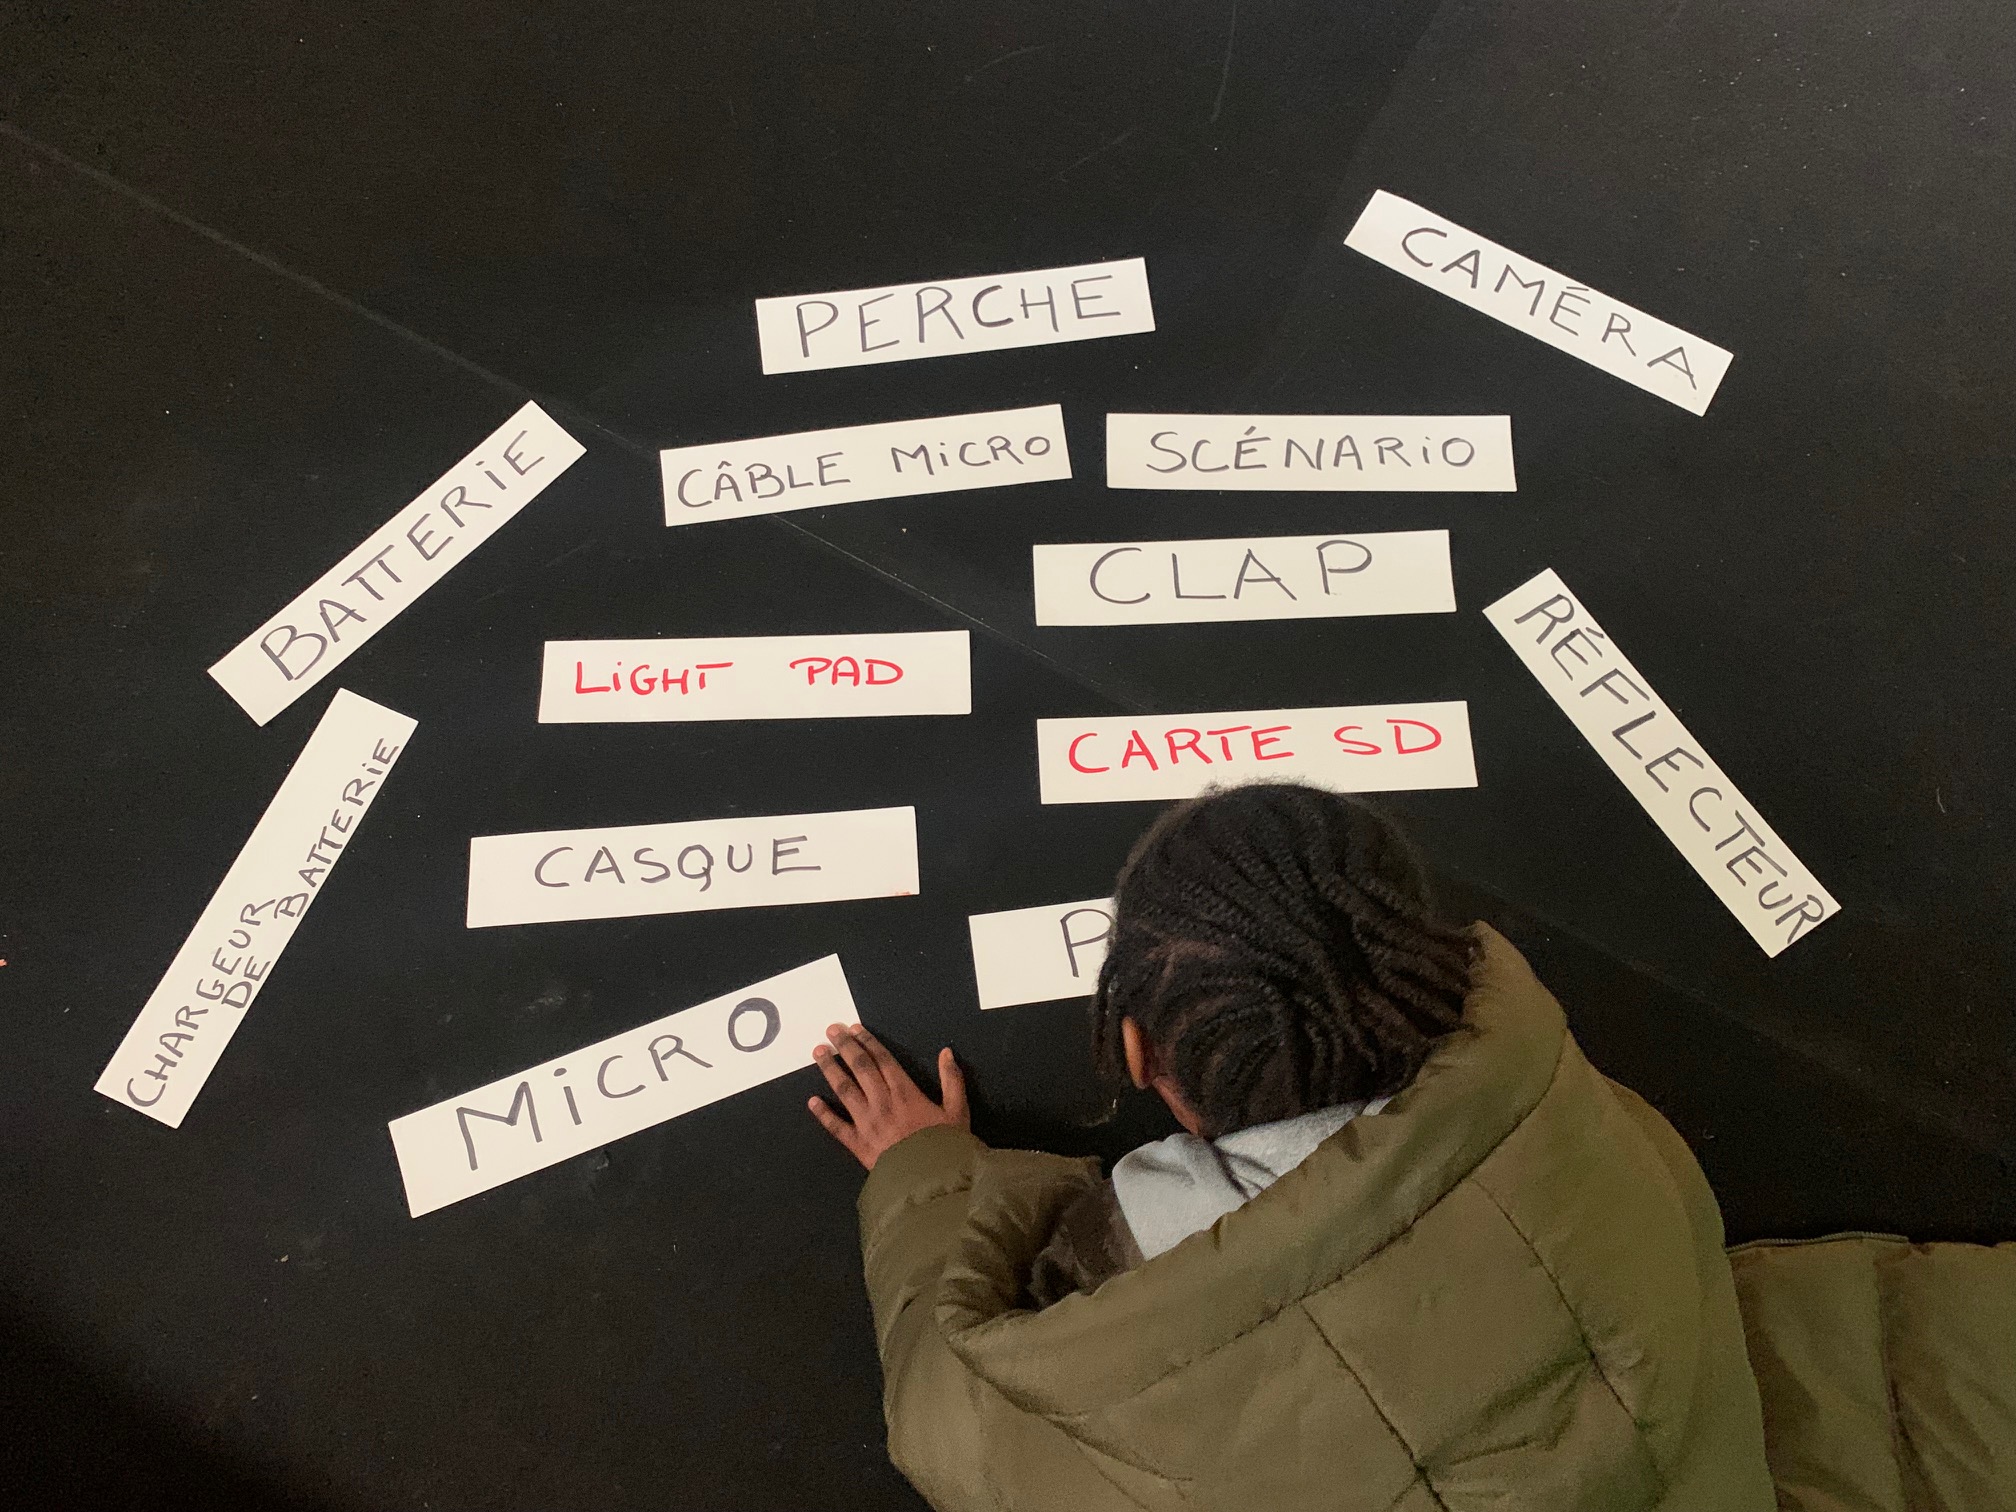 CAMÉRA
PERCHE
CÂBLE MiCRO
SCÉNARiO
BATTERiE
CLAP
LiGHT PAD
RÉFLECTEUR
CARTE SD
CHARGEUR
DE BATTERiE
CASQUE
P
MiCRO